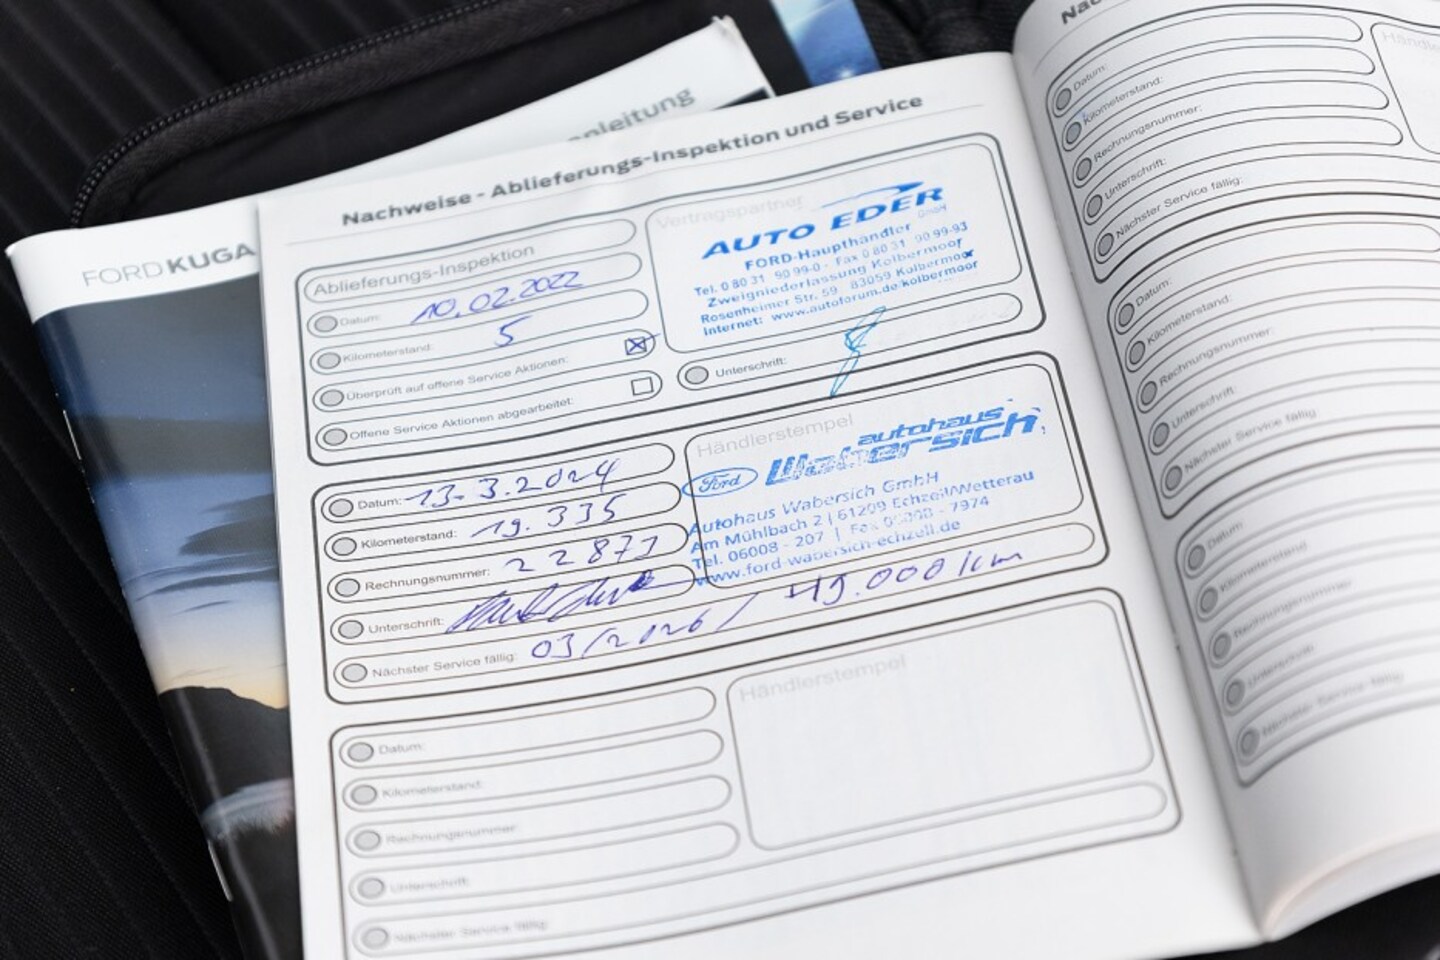 nleitung
FORD KUGA
Nachweise - Ablieferungs-Inspektion und Service
Ablieferungs-Inspektion
Datum: 10.02.2022
Kilometerstand: 5
Überprüft auf offene Service Aktionen:
Offene Service Aktionen abgearbeitet:
Vertragspartner
AUTO EDER
GmbH
FORD-Haupthändler
Tel. 0 80 31 90 99-0 - Fax 0 80 31 90 99-93
Zweigniederlassung Kolbermoor
Rosenheimer Str. 59 83059 Kolbermoor
Internet: www.autoforum.de/kolbermoor
Unterschrift:
Datum: 13.3.2024
Kilometerstand: 19.335
Rechnungsnummer: 22871
Unterschrift:
Nächster Service fällig: 03/2026 / 49.000 km
Händlerstempel
Ford
autohaus
Wabersich
Autohaus Wabersich GmbH
Am Mühlbach 2 | 61209 Echzell/Wetterau
Tel. 06008 - 207 | Fax 06008 - 7974
www.ford-wabersich-echzell.de
Datum:
Kilometerstand:
Rechnungsnummer:
Unterschrift:
Nächster Service fällig:
Händlerstempel
Datum:
Kilometerstand:
Rechnungsnummer:
Unterschrift:
Nächster Service fällig:
Händle
Datum:
Kilometerstand:
Rechnungsnummer:
Unterschrift:
Nächster Service fällig:
Datum:
Kilometerstand:
Rechnungsnummer:
Unterschrift:
Nächster Service fällig: